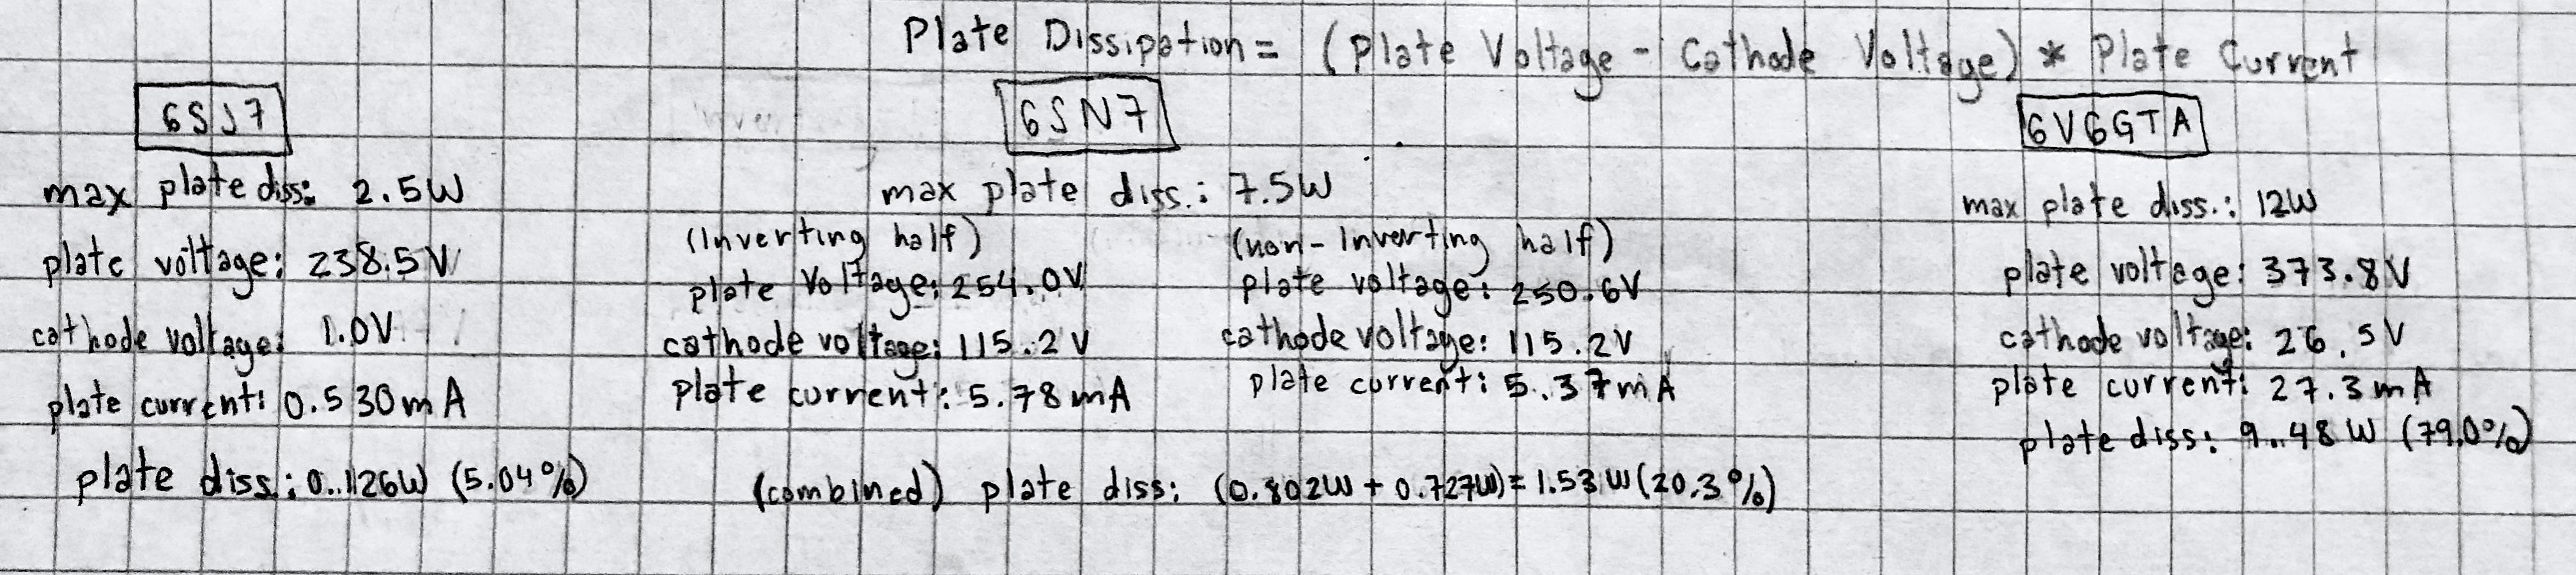 Plate Dissipation = (Plate Voltage - Cathode Voltage) * Plate Current
6SJ7
max plate diss: 2.5W
plate voltage: 238.5V
cathode voltage: 1.0V
plate current: 0.530mA
plate diss: 0.126W (5.04%)
6SN7
max plate diss.: 7.5W
(Inverting half)
plate Voltage: 254.0V
cathode voltage: 115.2V
plate current: 5.78mA
(non-Inverting half)
plate voltage: 250.6V
cathode voltage: 115.2V
plate current: 5.37mA
(combined) plate diss: (0.802W + 0.727W) = 1.53W (20.3%)
6V6GTA
max plate diss.: 12W
plate voltage: 373.8V
cathode voltage: 26.5V
plate current: 27.3mA
plate diss: 9.48W (79.0%)